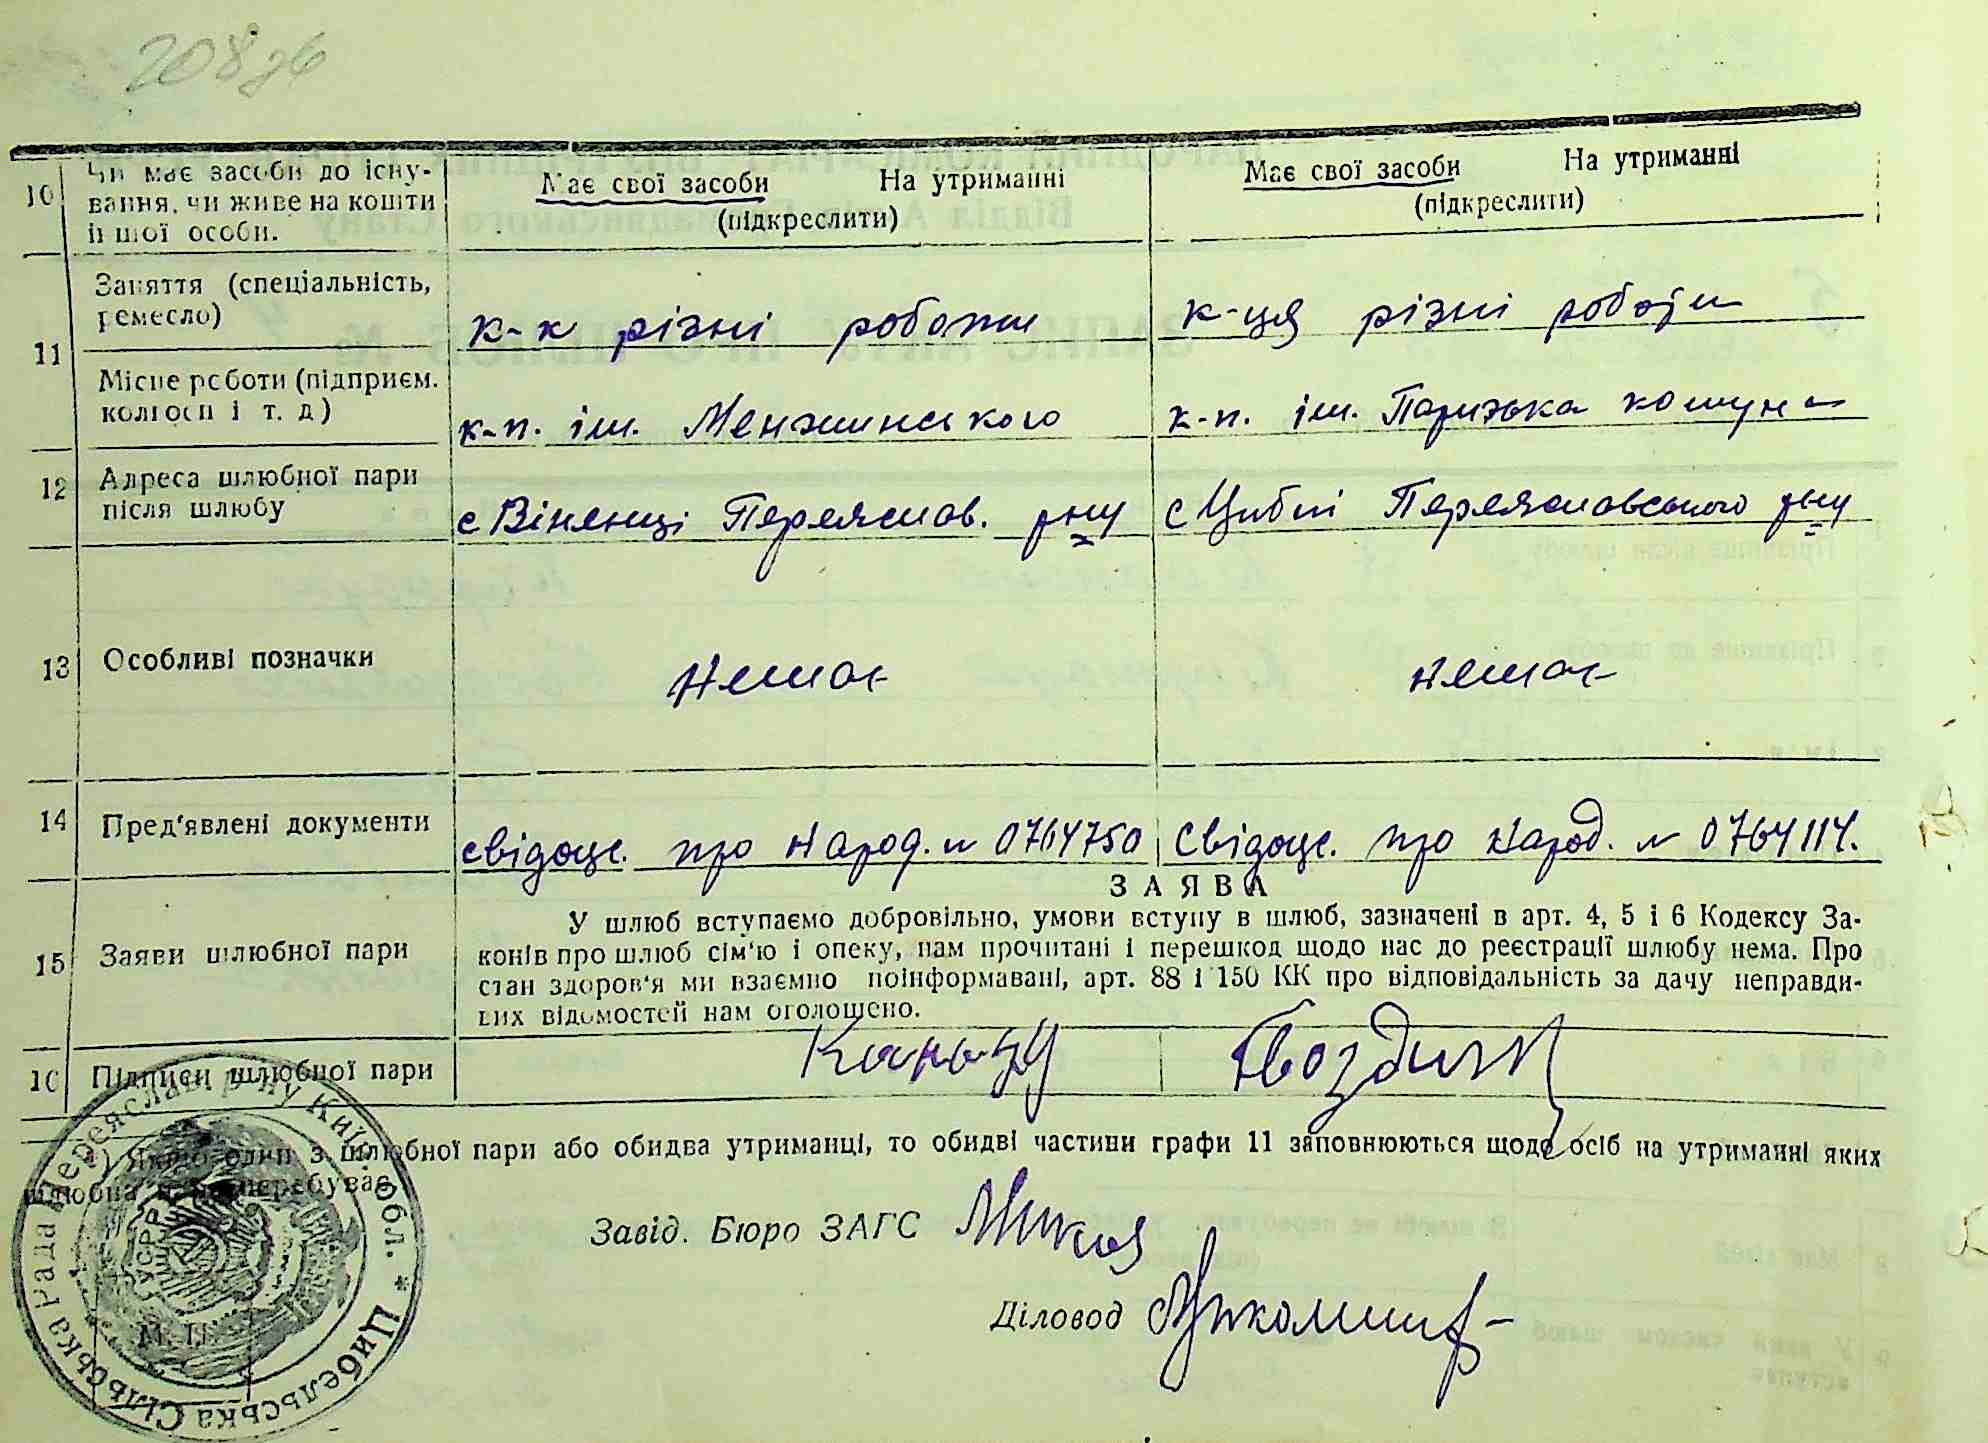 208 дб
10 Чи має засоби до існування, чи живе на кошти іншої особи.
Має свої засоби На утриманні
(підкреслити)
Має свої засоби На утриманні
(підкреслити)
11 Заняття (спеціальність, ремесло)
к-к різні роботи
к-ця різні роботи
Місце роботи (підприєм. колгосп і т. д)
к-п. ім. Менжинського
к-п. ім. Паризька комуна
12 Адреса шлюбної пари після шлюбу
с Віненці Переяслав. р-ну
с Циблі Переяславського р-ну
13 Особливі позначки
немає
немає
14 Пред'явлені документи
свідоцс. про народ. № 0764750
Свідоцс. про народ. № 0764114.
ЗАЯВА
15 Заяви шлюбної пари
У шлюб вступаємо добровільно, умови вступу в шлюб, зазначені в арт. 4, 5 і 6 Кодексу За-
конів про шлюб сім'ю і опеку, нам прочитані і перешкод щодо нас до реєстрації шлюбу нема. Про
стан здоров'я ми взаємно поінформавані, арт. 88 і 150 КК про відповідальність за дачу неправди-
вих відомостей нам оголошено.
16 Підписи шлюбної пари
*) Якщо один з шлюбної пари або обидва утриманці, то обидві частини графи 11 заповнюються щодо осіб на утриманні яких
шлюбна п перебуває
Завід. Бюро ЗАГС
Діловод
М. П.
УСРР
Цибельська Сільська Рада Переяслав р-ну Київ. обл. *